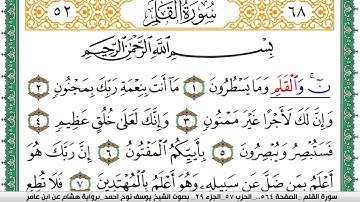 ٥٢ سُورَةُ القَلَمِ ٦٨
بِسْمِ اللَّهِ الرَّحْمَٰنِ الرَّحِيمِ
نٓ وَالْقَلَمِ وَمَا يَسْطُرُونَ ١ مَا أَنتَ بِنِعْمَةِ رَبِّكَ بِمَجْنُونٍ ٢
وَإِنَّ لَكَ لَأَجْرًا غَيْرَ مَمْنُونٍ ٣ وَإِنَّكَ لَعَلَىٰ خُلُقٍ عَظِيمٍ ٤
فَسَتُبْصِرُ وَيُبْصِرُونَ ٥ بِأَييِّكُمُ الْمَفْتُونُ ٦ إِنَّ رَبَّكَ هُوَ
أَعْلَمُ بِمَن ضَلَّ عَن سَبِيلِهِ وَهُوَ أَعْلَمُ بِالْمُهْتَدِينَ ٧ فَلَا تُطِعِ
سورة القلم الصفحة ٥٦٤ الحزب ٥٧ الجزء ٢٩ بصوت الشيخ يوسف نوح احمد برواية هشام عن ابن عامر